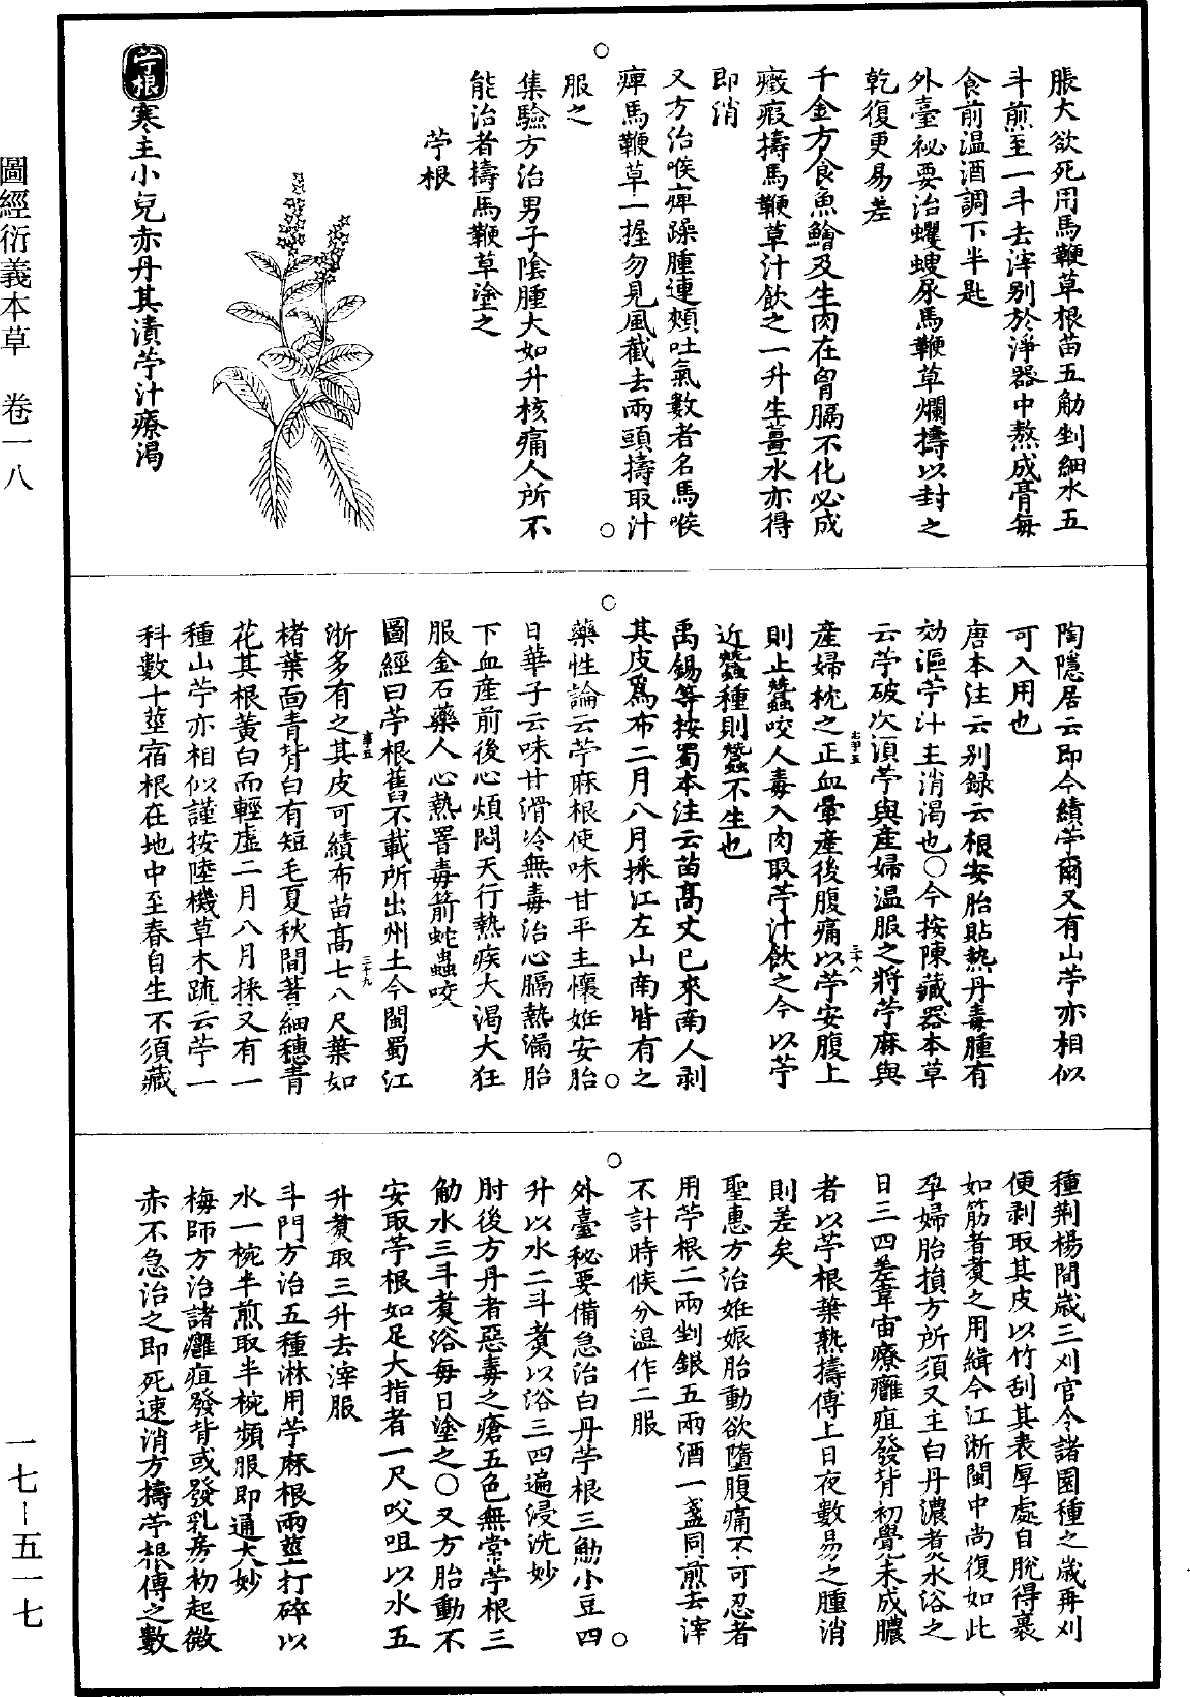 圖經衍義本草　卷一八
脹大欲死用馬鞭草根苗五觔剉細水五
斗煎至一斗去滓别於淨器中熬成膏每
食前温酒調下半匙
外臺祕要治蠼螋尿馬鞭草爛擣以封之
乾復更易差
千金方食魚鱠及生肉在胷膈不化必成
癥瘕擣馬鞭草汁飲之一升生薑水亦得
即消
又方治喉痺躁腫連頰吐氣數者名馬喉
痺馬鞭草一握勿見風截去兩頭擣取汁
服之
集驗方治男子陰腫大如升核痛人所不
能治者擣馬鞭草塗之
苧根
苧根寒主小兒赤丹其漬苧汁療渴
陶隱居云即今績苧爾又有山苧亦相似
可入用也
唐本注云别録云根安胎貼熱丹毒腫有
効漚苧汁主消渴也○今按陳藏器本草
云苧破次㴿苧與產婦温服之將苧麻與
產婦枕之止血暈產後腹痛以苧安腹上
則止蠶咬人毒入肉取苧汁飲之今以苧
近蠶種則蠶不生也
禹錫等按蜀本注云苗高丈已來南人剥
其皮爲布二月八月採江左山南皆有之
藥性論云苧麻根使味甘平主懷姙安胎
日華子云味甘滑冷無毒治心膈熱漏胎
下血産前後心煩悶天行熱疾大渴大狂
服金石藥人心熱署毒箭蛇蟲咬
圖經曰苧根舊不載所出州土今閩蜀江
浙多有之其皮可績布苗高七八尺葉如
楮葉面青背白有短毛夏秋間著細穗青
花其根黄白而輕虚二月八月採又有一
種山苧亦相似謹按陸機草木疏云苧一
科數十莖宿根在地中至春自生不須藏
種荆楊間歲三刈官令諸園種之歲再刈
便剥取其皮以竹刮其表厚處自脫得裹
如筋者煑之用緝今江浙閩中尚復如此
孕婦胎損方所須又主白丹濃煑水浴之
日三四差韋宙療癰疽發背初覺未成膿
者以苧根葉熟擣傅上日夜數易之腫消
則差矣
聖惠方治姙娠胎動欲墮腹痛不可忍者
用苧根二兩剉銀五兩酒一盞同煎去滓
不計時候分温作二服
外臺秘要備急治白丹苧根三觔小豆四
升以水二斗煑以浴三四遍浸洗妙
肘後方丹者惡毒之瘡五色無常苧根三
觔水三斗煑浴每日塗之○又方胎動不
安取苧根如足大指者一尺㕮咀以水五
升煑取三升去滓服
斗門方治五種淋用苧麻根兩莖打碎以
水一椀半煎取半椀頻服即通大妙
梅師方治諸癰疽發背或發乳房初起微
赤不急治之即死速消方擣苧根傅之數
一七—五一七